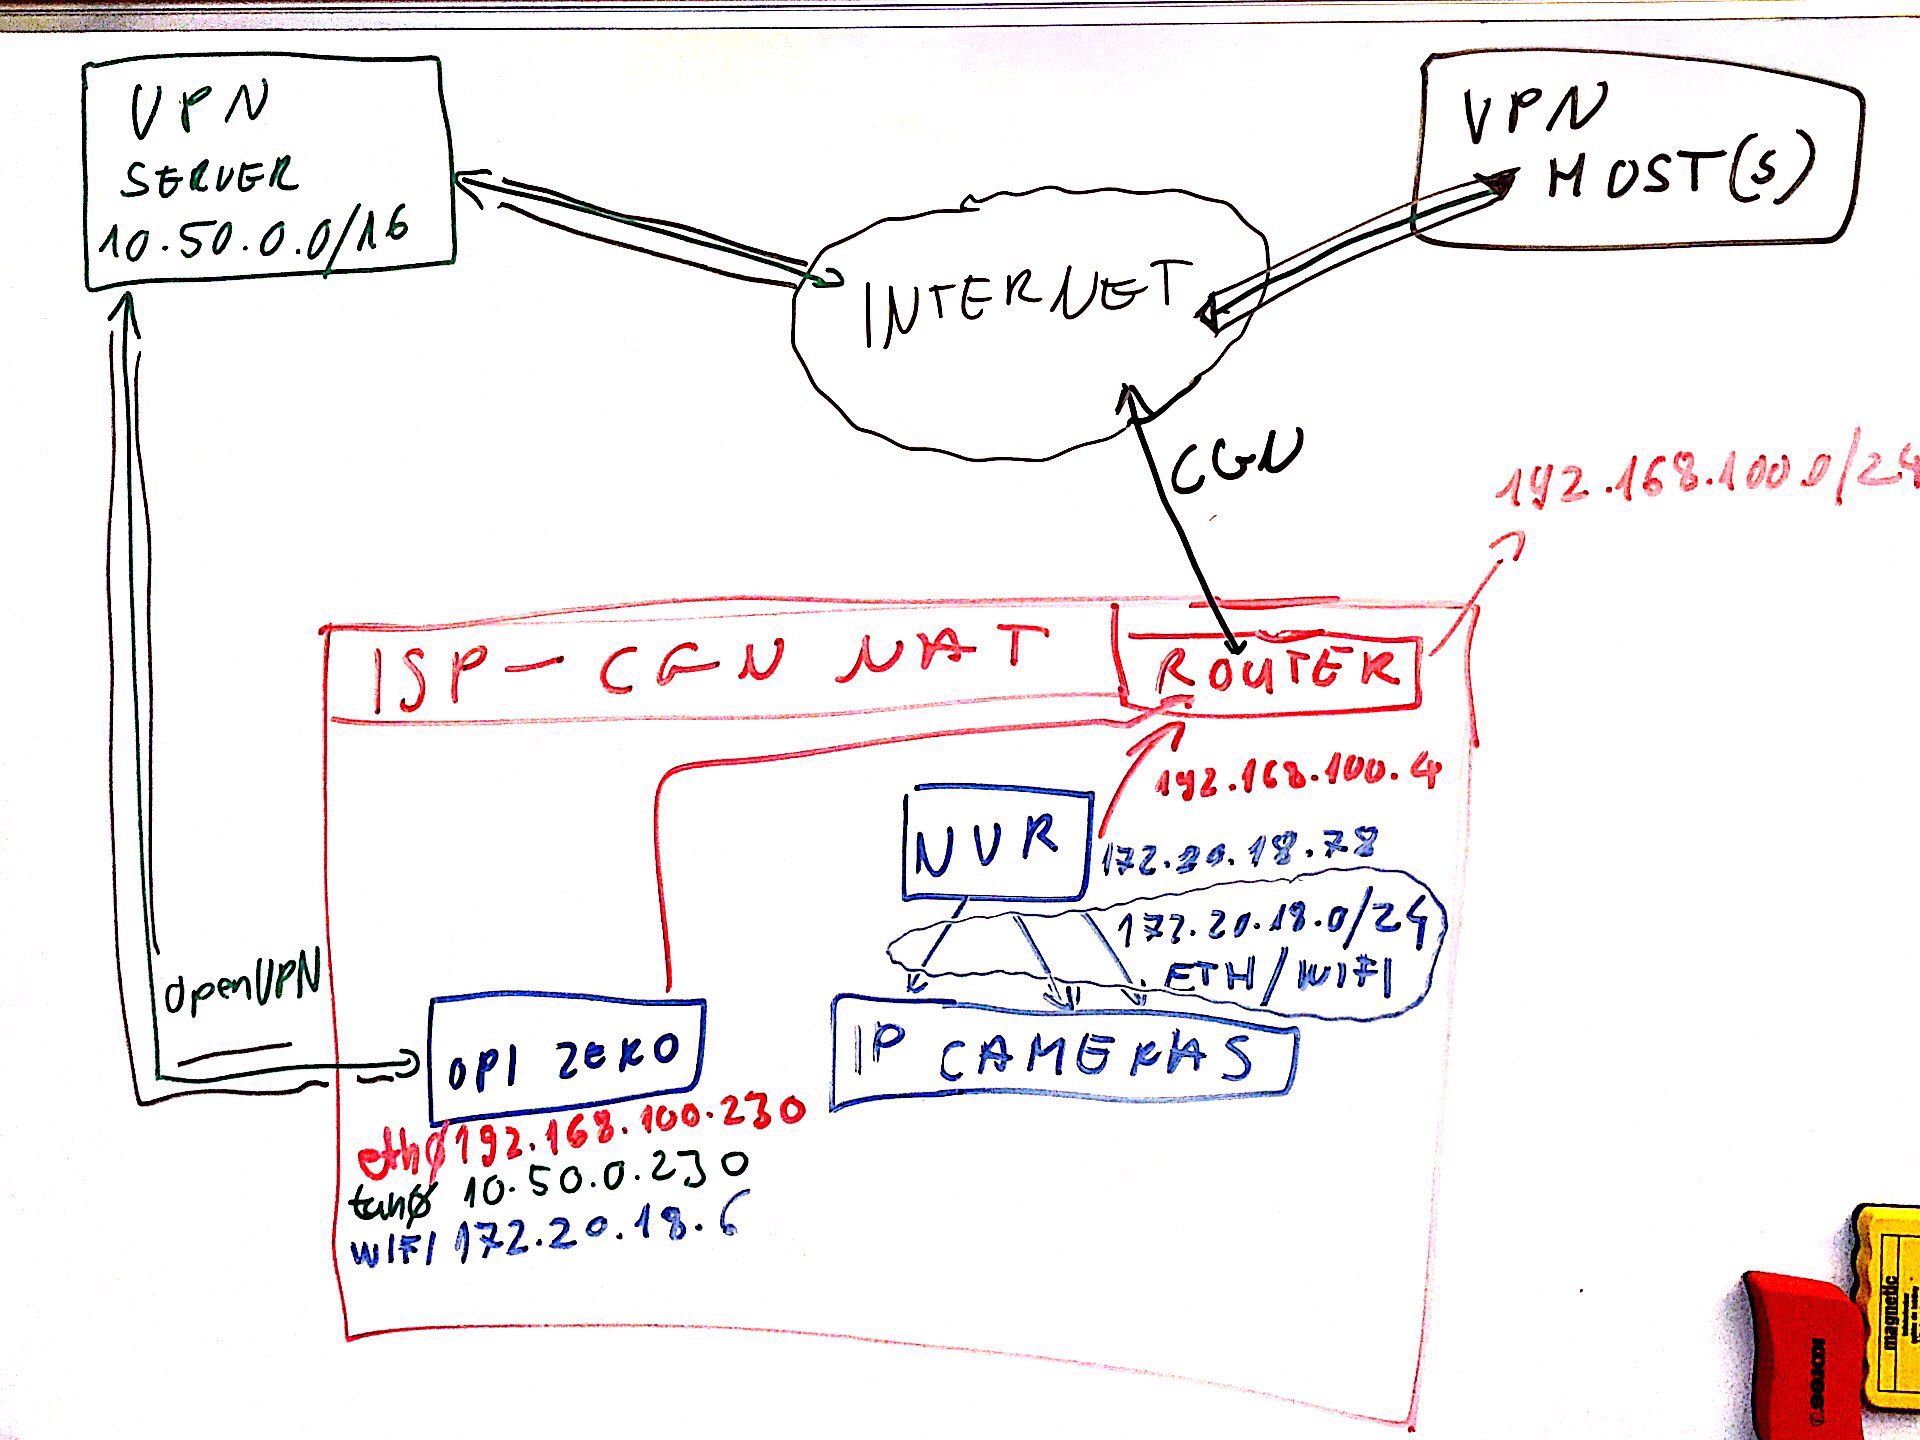 VPN
SERVER
10.50.0.0/16
VPN
HOST(S)
INTERNET
CGN
192.168.100.0/24
ISP - CGN NAT
ROUTER
192.168.100.4
NVR
172.20.18.78
172.20.18.0/24
ETH/WIFI
OpenVPN
OPI ZERO
IP CAMERAS
eth0 192.168.100.230
tun0 10.50.0.230
WIFI 172.20.18.6
magnetic